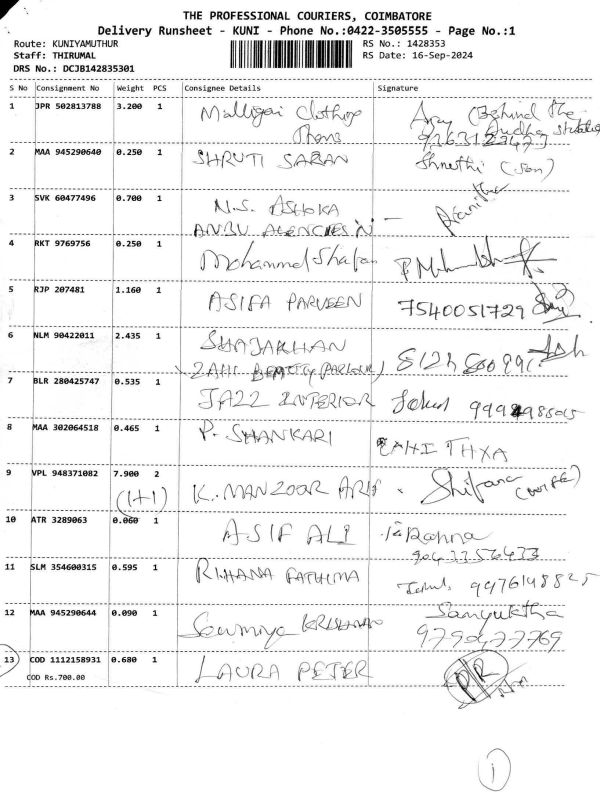 THE PROFESSIONAL COURIERS, COIMBATORE
Delivery Runsheet - KUNI - Phone No.:0422-3505555 - Page No.:1
Route: KUNIYAMUTHUR RS No.: 1428353
Staff: THIRUMAL RS Date: 16-Sep-2024
DRS No.: DCJB142835301
S No Consignment No Weight PCS Consignee Details Signature
1 JPR 502813788 3.200 1 Malligai Clothing (Behind the
2 MAA 945290640 0.250 1 SHRUTI SARAN Shruthi (Son)
3 SVK 60477496 0.700 1 N.S. ASHOKA
ANBU AGENCIES
4 RKT 9769756 0.250 1 Mohammed
5 RJP 207481 1.160 1 ASIFA PARVEEN 7540051729
6 NLM 90422011 2.435 1 SHAJAKHAN
ZAHI BEAUTY PARLOUR)
7 BLR 280425747 0.535 1 JAZZ INTERIOR
8 MAA 302064518 0.465 1 P. SHANKARI
9 VPL 948371082 7.900 2 K. MANZOOR ARIF Shifana (WIFE)
(1+1)
10 ATR 3289063 0.060 1 ASIF ALI
11 SLM 354600315 0.595 1 RIHANA FATHIMA 9976148825
12 MAA 945290644 0.090 1 Sowmiya KRISHNAN Samyuktha
9790477769
13 COD 1112158931 0.680 1 LAURA PETER
COD Rs.700.00
1